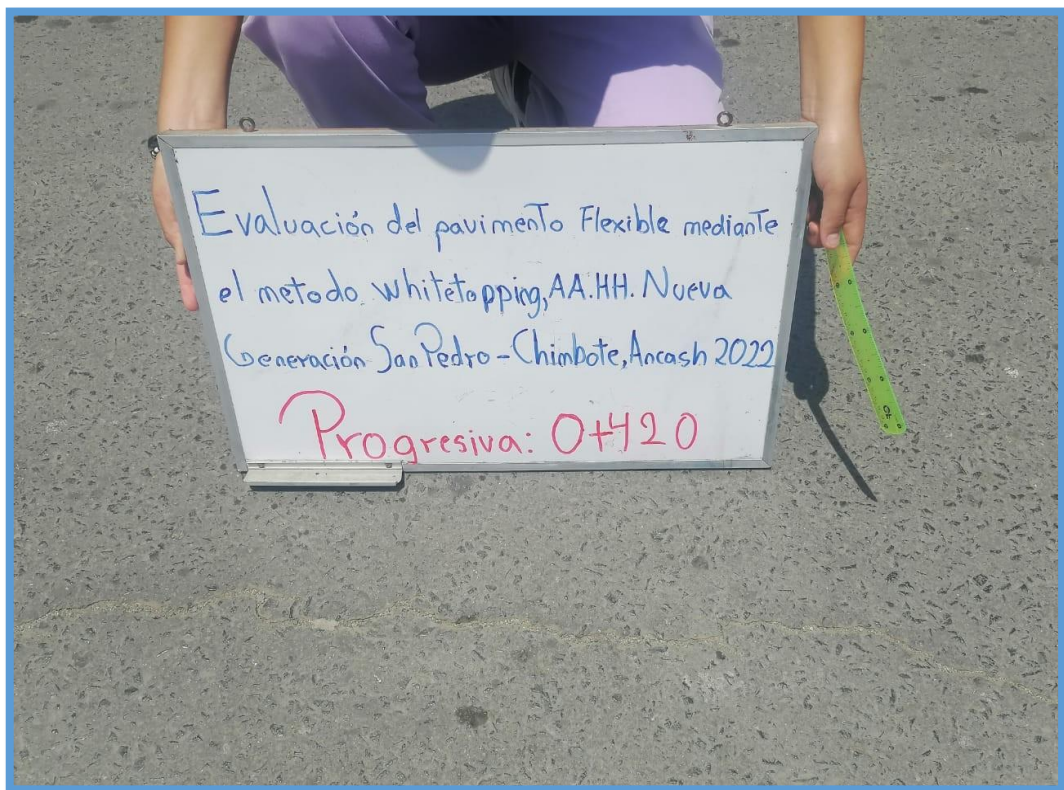 Evaluación del pavimento Flexible mediante
el metodo whitetopping, AA.HH. Nueva
Generación San Pedro - Chimbote, Ancash 2022
Progresiva: 0+420